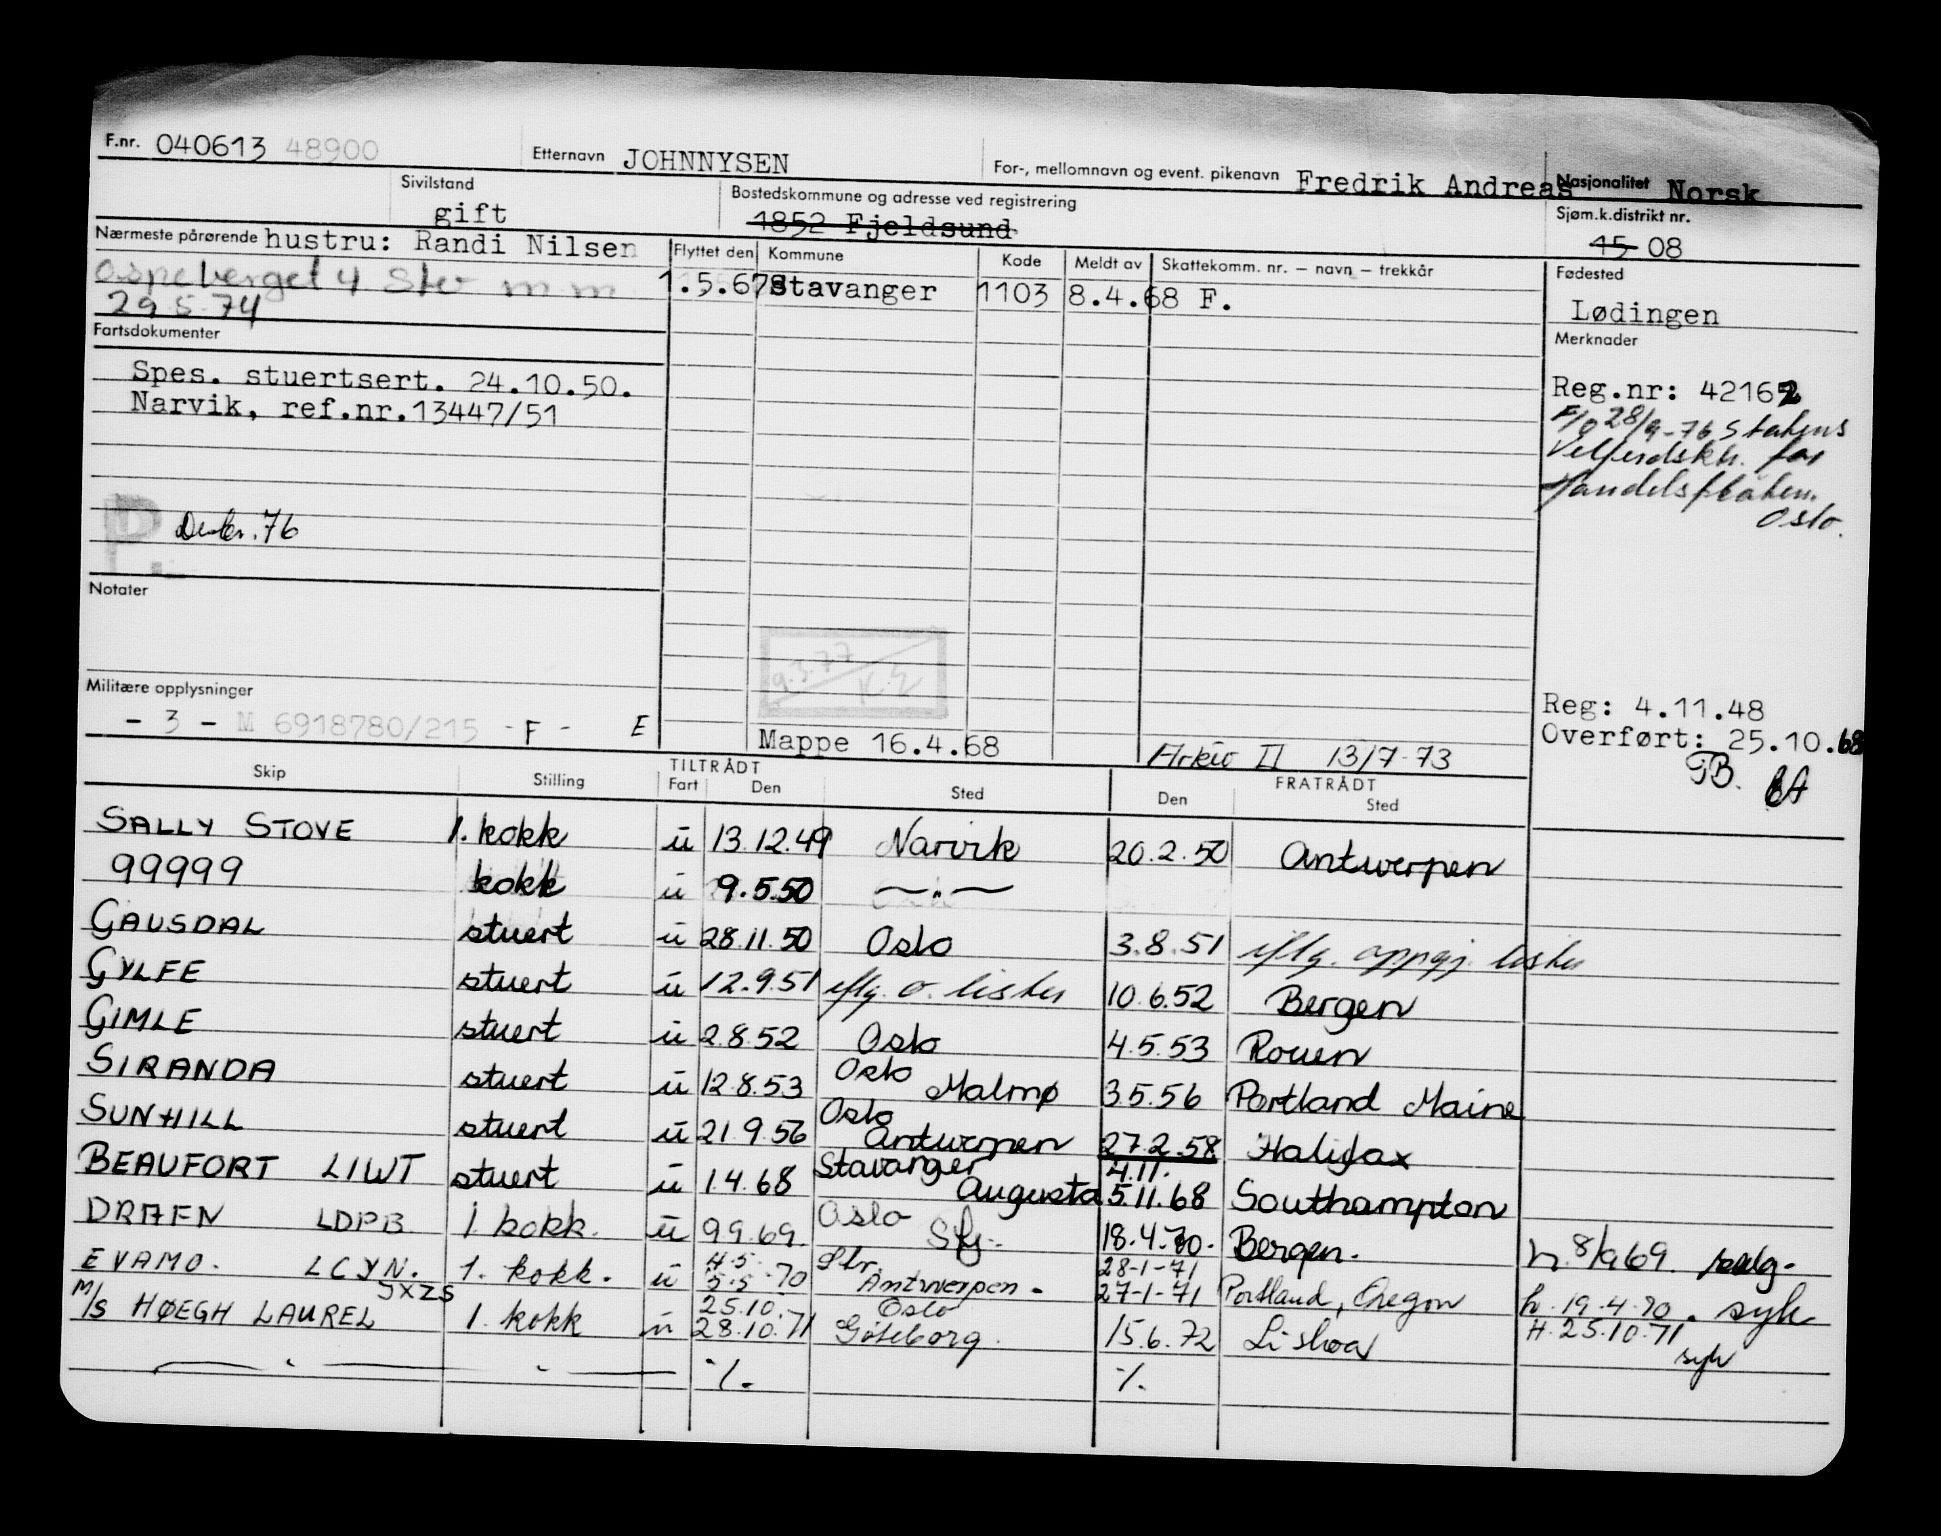 F.nr. 040613 48900 Etternavn JOHNNYSEN For-, mellomnavn og event. pikenavn Fredrik Andreas Nasjonalitet Norsk
Sivilstand gift Bostedskommune og adresse ved registrering 1852 Fjeldsund Sjøm.k.distrikt nr. 15 08
Nærmeste pårørende hustru: Randi Nilsen
Ospeberget 4
29.5.74
Flyttet den Kommune Kode Meldt av Skattekomm. nr. – navn – trekkår
1.5.67 Stavanger 1103 8.4.68 F.
Fødested
Lødingen
Fartsdokumenter
Spes. stuertsert. 24.10.50.
Narvik, ref.nr.13447/51
P. Desbr. 76
Merknader
Reg.nr: 42162
F/g 28/9-76 Statens
Velferdskt. for
Handelsflåten.
Oslo.
Notater
9.3.77
Militære opplysninger
- 3 - M 6918780/215 - F - E
Mappe 16.4.68
Arkiv II 13/7-73
Reg: 4.11.48
Overført: 25.10.68
TILTRÅDT FRATRÅDT
Skip Stilling Fart Den Sted Den Sted
SALLY STOVE 1. kokk u 13.12.49 Narvik 20.2.50 Antwerpen
99999 kokk u 9.5.50 —"—
GAUSDAL stuert u 28.11.50 Oslo 3.8.51 iflg. oppgj. lister
GYLFE stuert u 12.9.51 iflg. o. lister 10.6.52 Bergen
GIMLE stuert u 2.8.52 Oslo 4.5.53 Rouen
SIRANDA stuert u 12.8.53 Oslo Malmø 3.5.56 Portland Maine
SUNHILL stuert u 21.9.56 Oslo Antwerpen 27.2.58 Halifax
BEAUFORT LIWT stuert u 1.4.68 Stavanger Augusta 4.11. 5.11.68 Southampton
DRAFN LDPB 1 kokk. u 9.9.69. Oslo 18.4.70. Bergen. h. 8/9 69.
EVAMO. LCYN. 1. kokk. u 4.5. 5.5.70 Antwerpen. 28-1-71 27-1-71 Portland, Oregon h. 19.4.70. syk
M/S HØEGH LAUREL JXZS 1. kokk u 25.10. 28.10.71 Oslo Göteborg. 15.6.72 Lisboa H. 25.10.71 syk